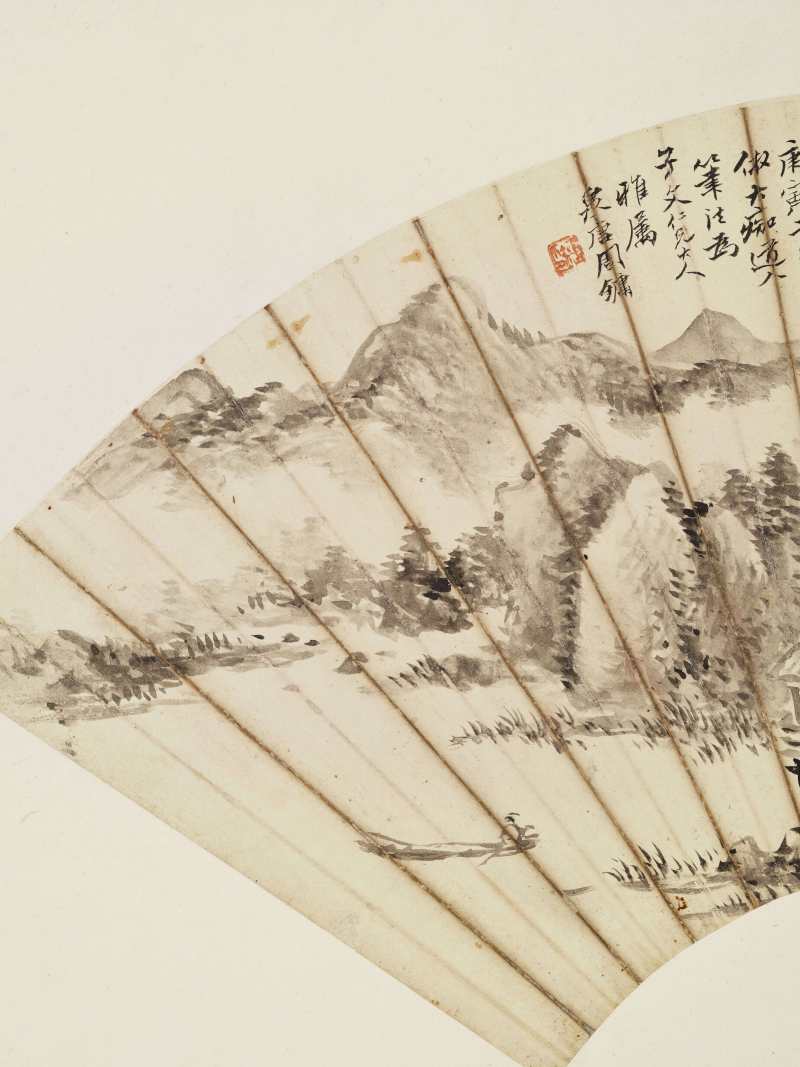 庚寅
倣大痴道人
筆法為
子文仁兄大人
雅屬
周鏞